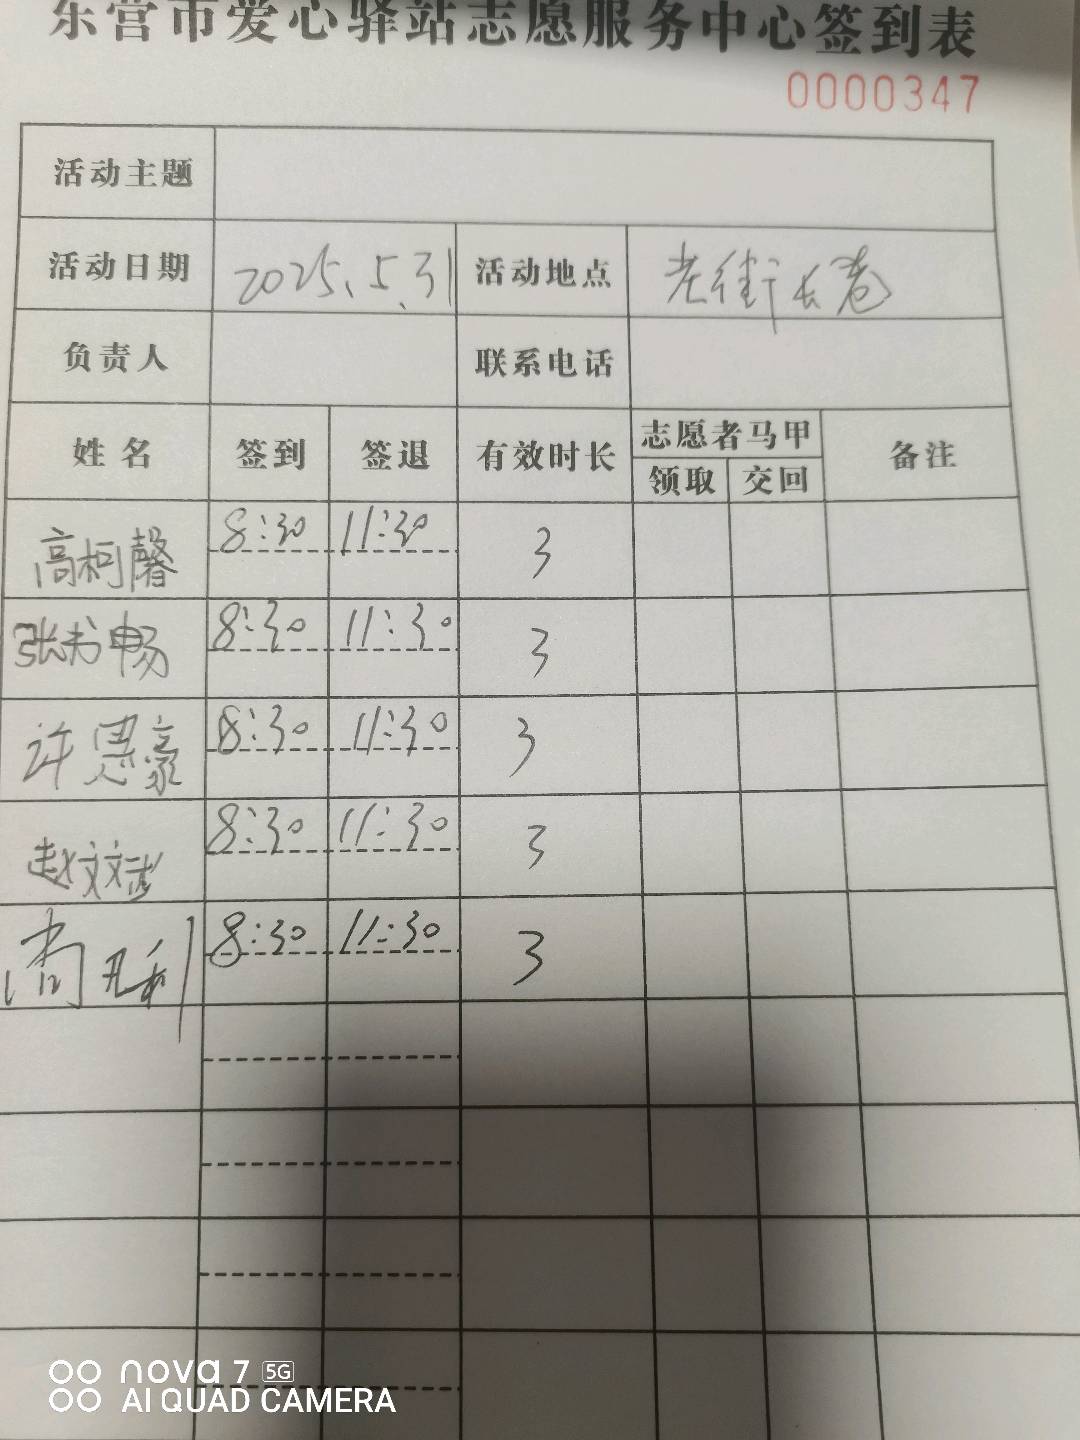 东营市爱心驿站志愿服务中心签到表
0000347
活动主题
活动日期 2025.5.31 活动地点 老街长卷
负责人 联系电话
姓名 签到 签退 有效时长 志愿者马甲 备注
领取 交回
高柯馨 8:30 11:30 3
张书畅 8:30 11:30 3
许思豪 8:30 11:30 3
赵文斌 8:30 11:30 3
8:30 11:30 3
nova 7 5G
AI QUAD CAMERA